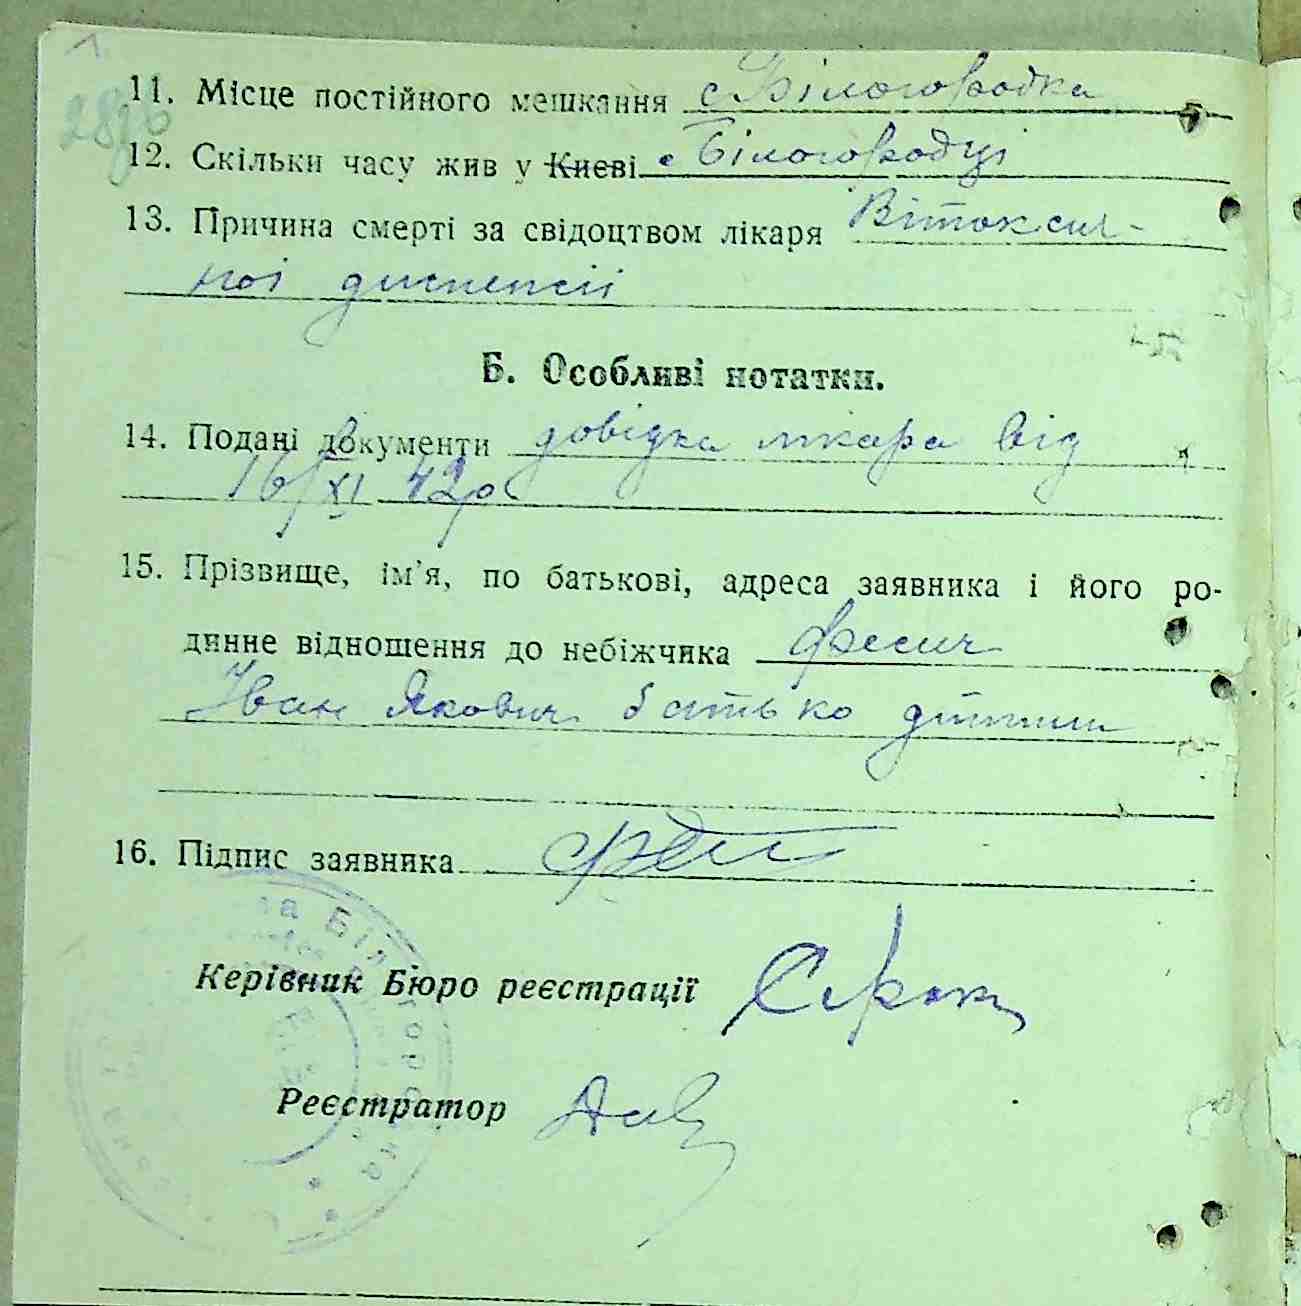 11. Місце постійного мешкання с Білогородка
12. Скільки часу жив у Києві с Білогородці
13. Причина смерті за свідоцтвом лікаря Вітоксич-
ної диспепсії
Б. Особливі нотатки.
14. Подані документи довідка лікаря від
16/XI 42р
15. Прізвище, ім'я, по батькові, адреса заявника і його ро-
динне відношення до небіжчика Фесич
Іван Якович батько дитини
16. Підпис заявника
Керівник Бюро реєстрації
Реєстратор